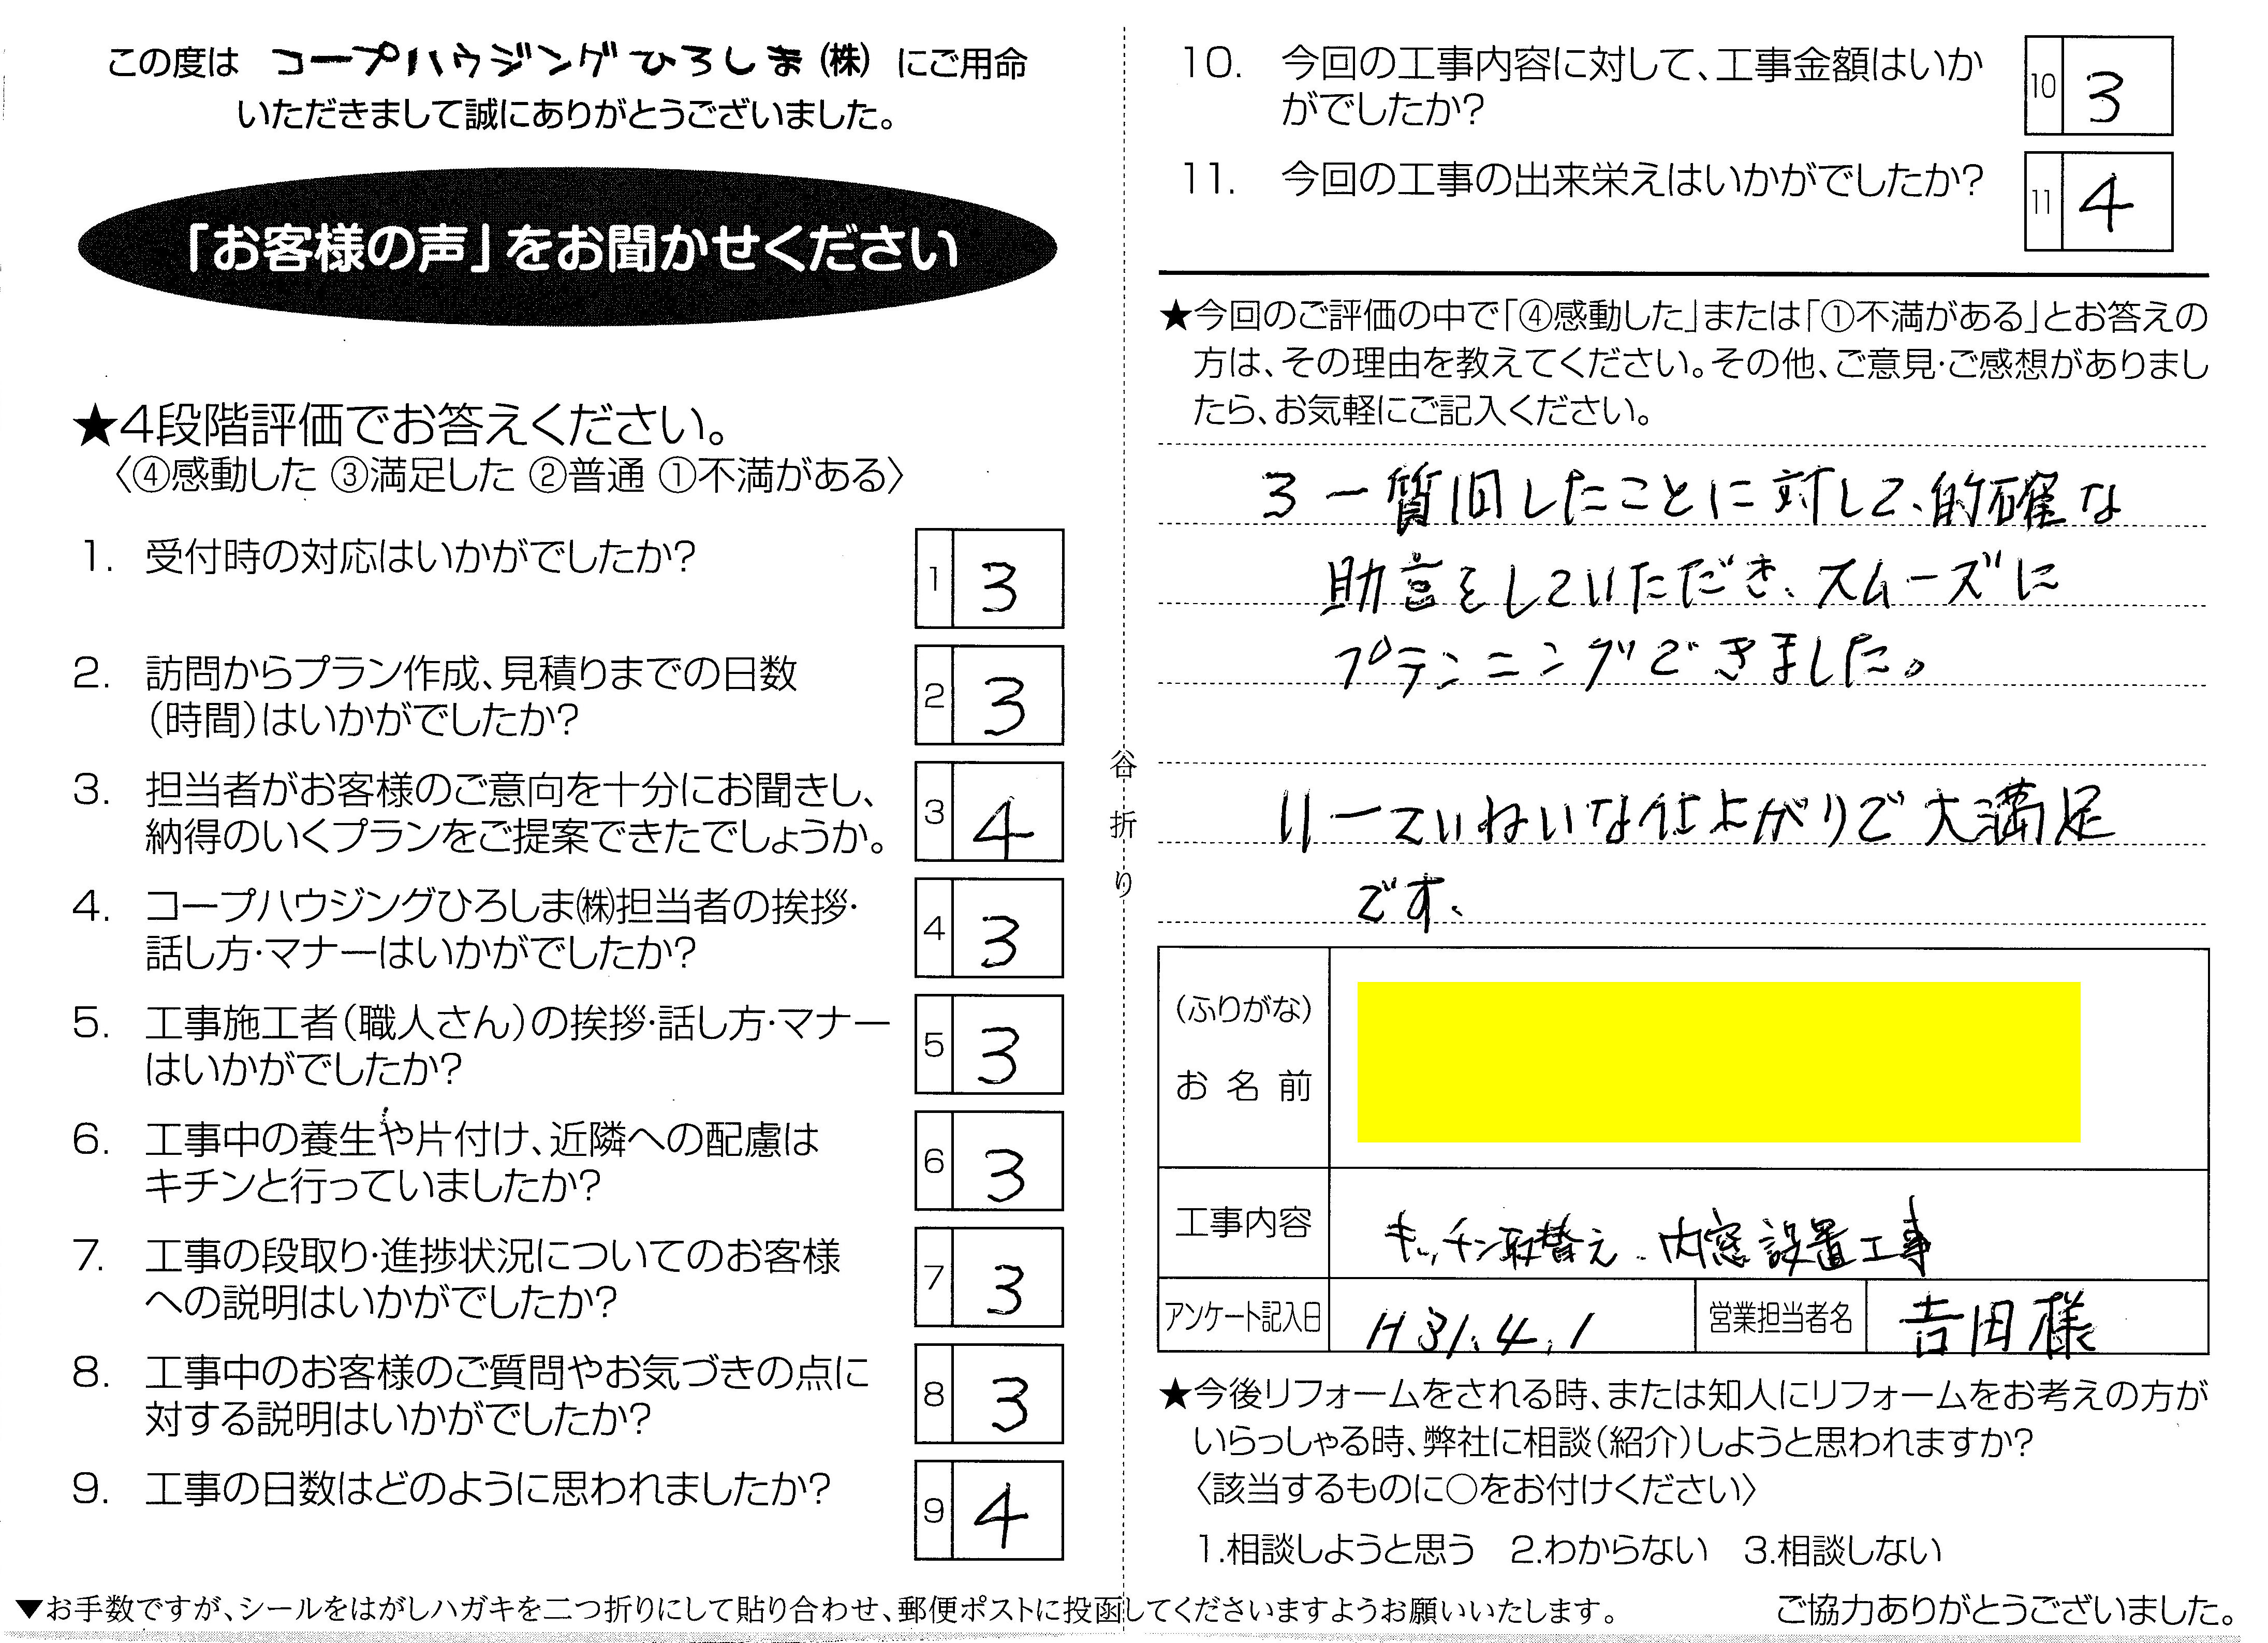 この度は コープハウジングひろしま(株) にご用命
いただきまして誠にありがとうございました。
「お客様の声」をお聞かせください
★4段階評価でお答えください。
〈④感動した ③満足した ②普通 ①不満がある〉
1. 受付時の対応はいかがでしたか? 1 3
2. 訪問からプラン作成、見積りまでの日数
(時間)はいかがでしたか? 2 3
3. 担当者がお客様のご意向を十分にお聞きし、
納得のいくプランをご提案できたでしょうか。 3 4
4. コープハウジングひろしま㈱担当者の挨拶・
話し方・マナーはいかがでしたか? 4 3
5. 工事施工者(職人さん)の挨拶・話し方・マナー
はいかがでしたか? 5 3
6. 工事中の養生や片付け、近隣への配慮は
キチンと行っていましたか? 6 3
7. 工事の段取り・進捗状況についてのお客様
への説明はいかがでしたか? 7 3
8. 工事中のお客様のご質問やお気づきの点に
対する説明はいかがでしたか? 8 3
9. 工事の日数はどのように思われましたか? 9 4
谷折り
10. 今回の工事内容に対して、工事金額はいか
がでしたか? 10 3
11. 今回の工事の出来栄えはいかがでしたか? 11 4
★今回のご評価の中で「④感動した」または「①不満がある」とお答えの
方は、その理由を教えてください。その他、ご意見・ご感想がありまし
たら、お気軽にご記入ください。
3 ー 質問したことに対して、的確な
助言をしていただき、スムーズに
プランニングできました。
11 ー ていねいな仕上がりで大満足
です。
(ふりがな)
お名前
工事内容 キッチン取替え・内窓設置工事
アンケート記入日 H31.4.1 営業担当者名 吉田様
★今後リフォームをされる時、または知人にリフォームをお考えの方が
いらっしゃる時、弊社に相談(紹介)しようと思われますか?
〈該当するものに○をお付けください〉
1.相談しようと思う 2.わからない 3.相談しない
▼お手数ですが、シールをはがしハガキを二つ折りにして貼り合わせ、郵便ポストに投函してくださいますようお願いいたします。
ご協力ありがとうございました。